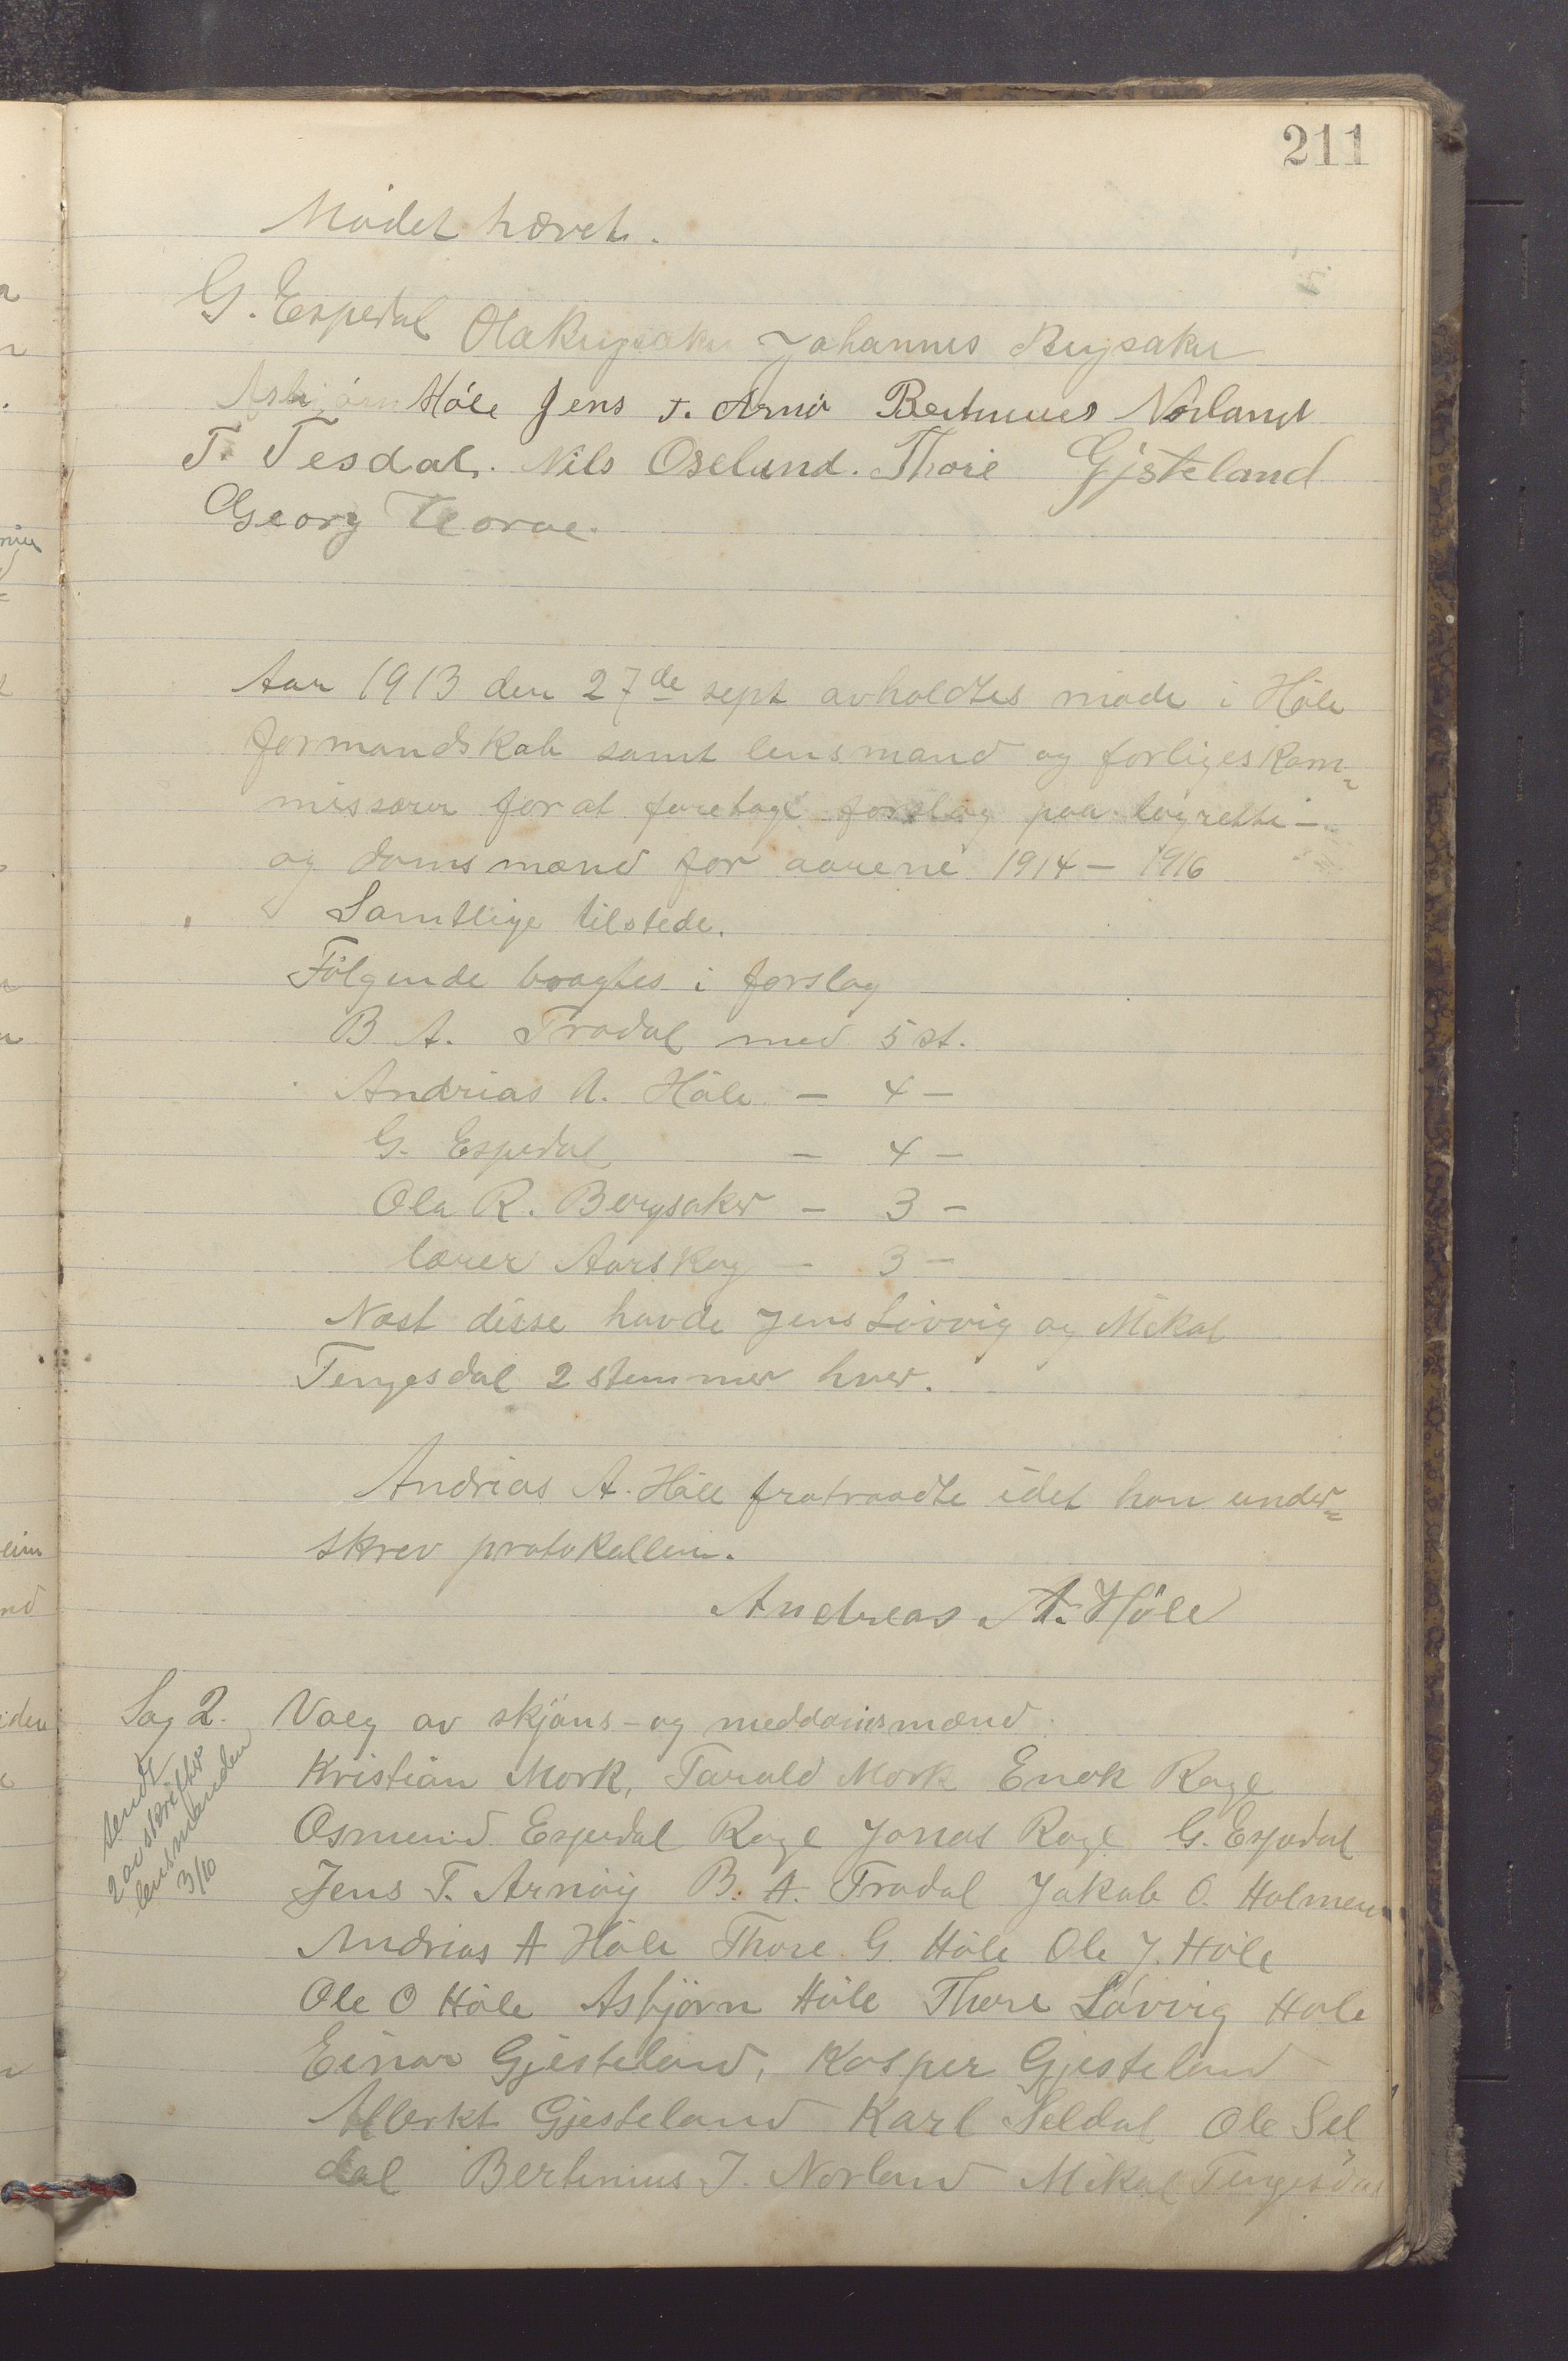 211
Mödet hævet.
G. Espedal Ola Bergsaker Johannes Bergsaker
Asbjörn Höle Jens T. Arnö Bertinius Norland
T. Tesdal. Nils Oseland. Thore Gjsteland
Georg
Aar 1913 den 27de sept avholdtes möde i Höle
formandskab samt lensmand og forligeskom-
missærer for at foretage forslag paa lagrette-
og domsmænd for aarene 1914 – 1916
Samtlige tilstede.
Fölgende bragtes i forslag
B A. Tradal med 5 st.
Andrias A. Höle – 4 –
G. Espedal – 4 –
Ola R. Bergsaker – 3 –
lærer Aarskog – 3 –
Næst disse havde Jens Lövvig og Mikal
Tengesdal 2 stemmer hver.
Andrias A. Höle fratraadte idet han under-
skrev protokollen.
Andreas A. Höle
Sag 2. Valg av skjöns- og meddomsmænd.
Kristian Mork, Tarald Mork Enok Rage
Osmund Espedal Rage Jonas Rage G. Espedal
Jens T. Arnöy B. A. Tradal Jakob O. Holmen
Andrias A Höle Thore G. Höle Ole J. Höle
Ole O Höle Asbjörn Höle Thore Lövvig Hole
Einar Gjesteland, Kasper Gjesteland
Albrkt Gjesteland Karl Seldal Ole Sel
dal Bertinius J. Norland Mikal Tengesdal
sendt
2 avskrifter
lensmanden
3/10